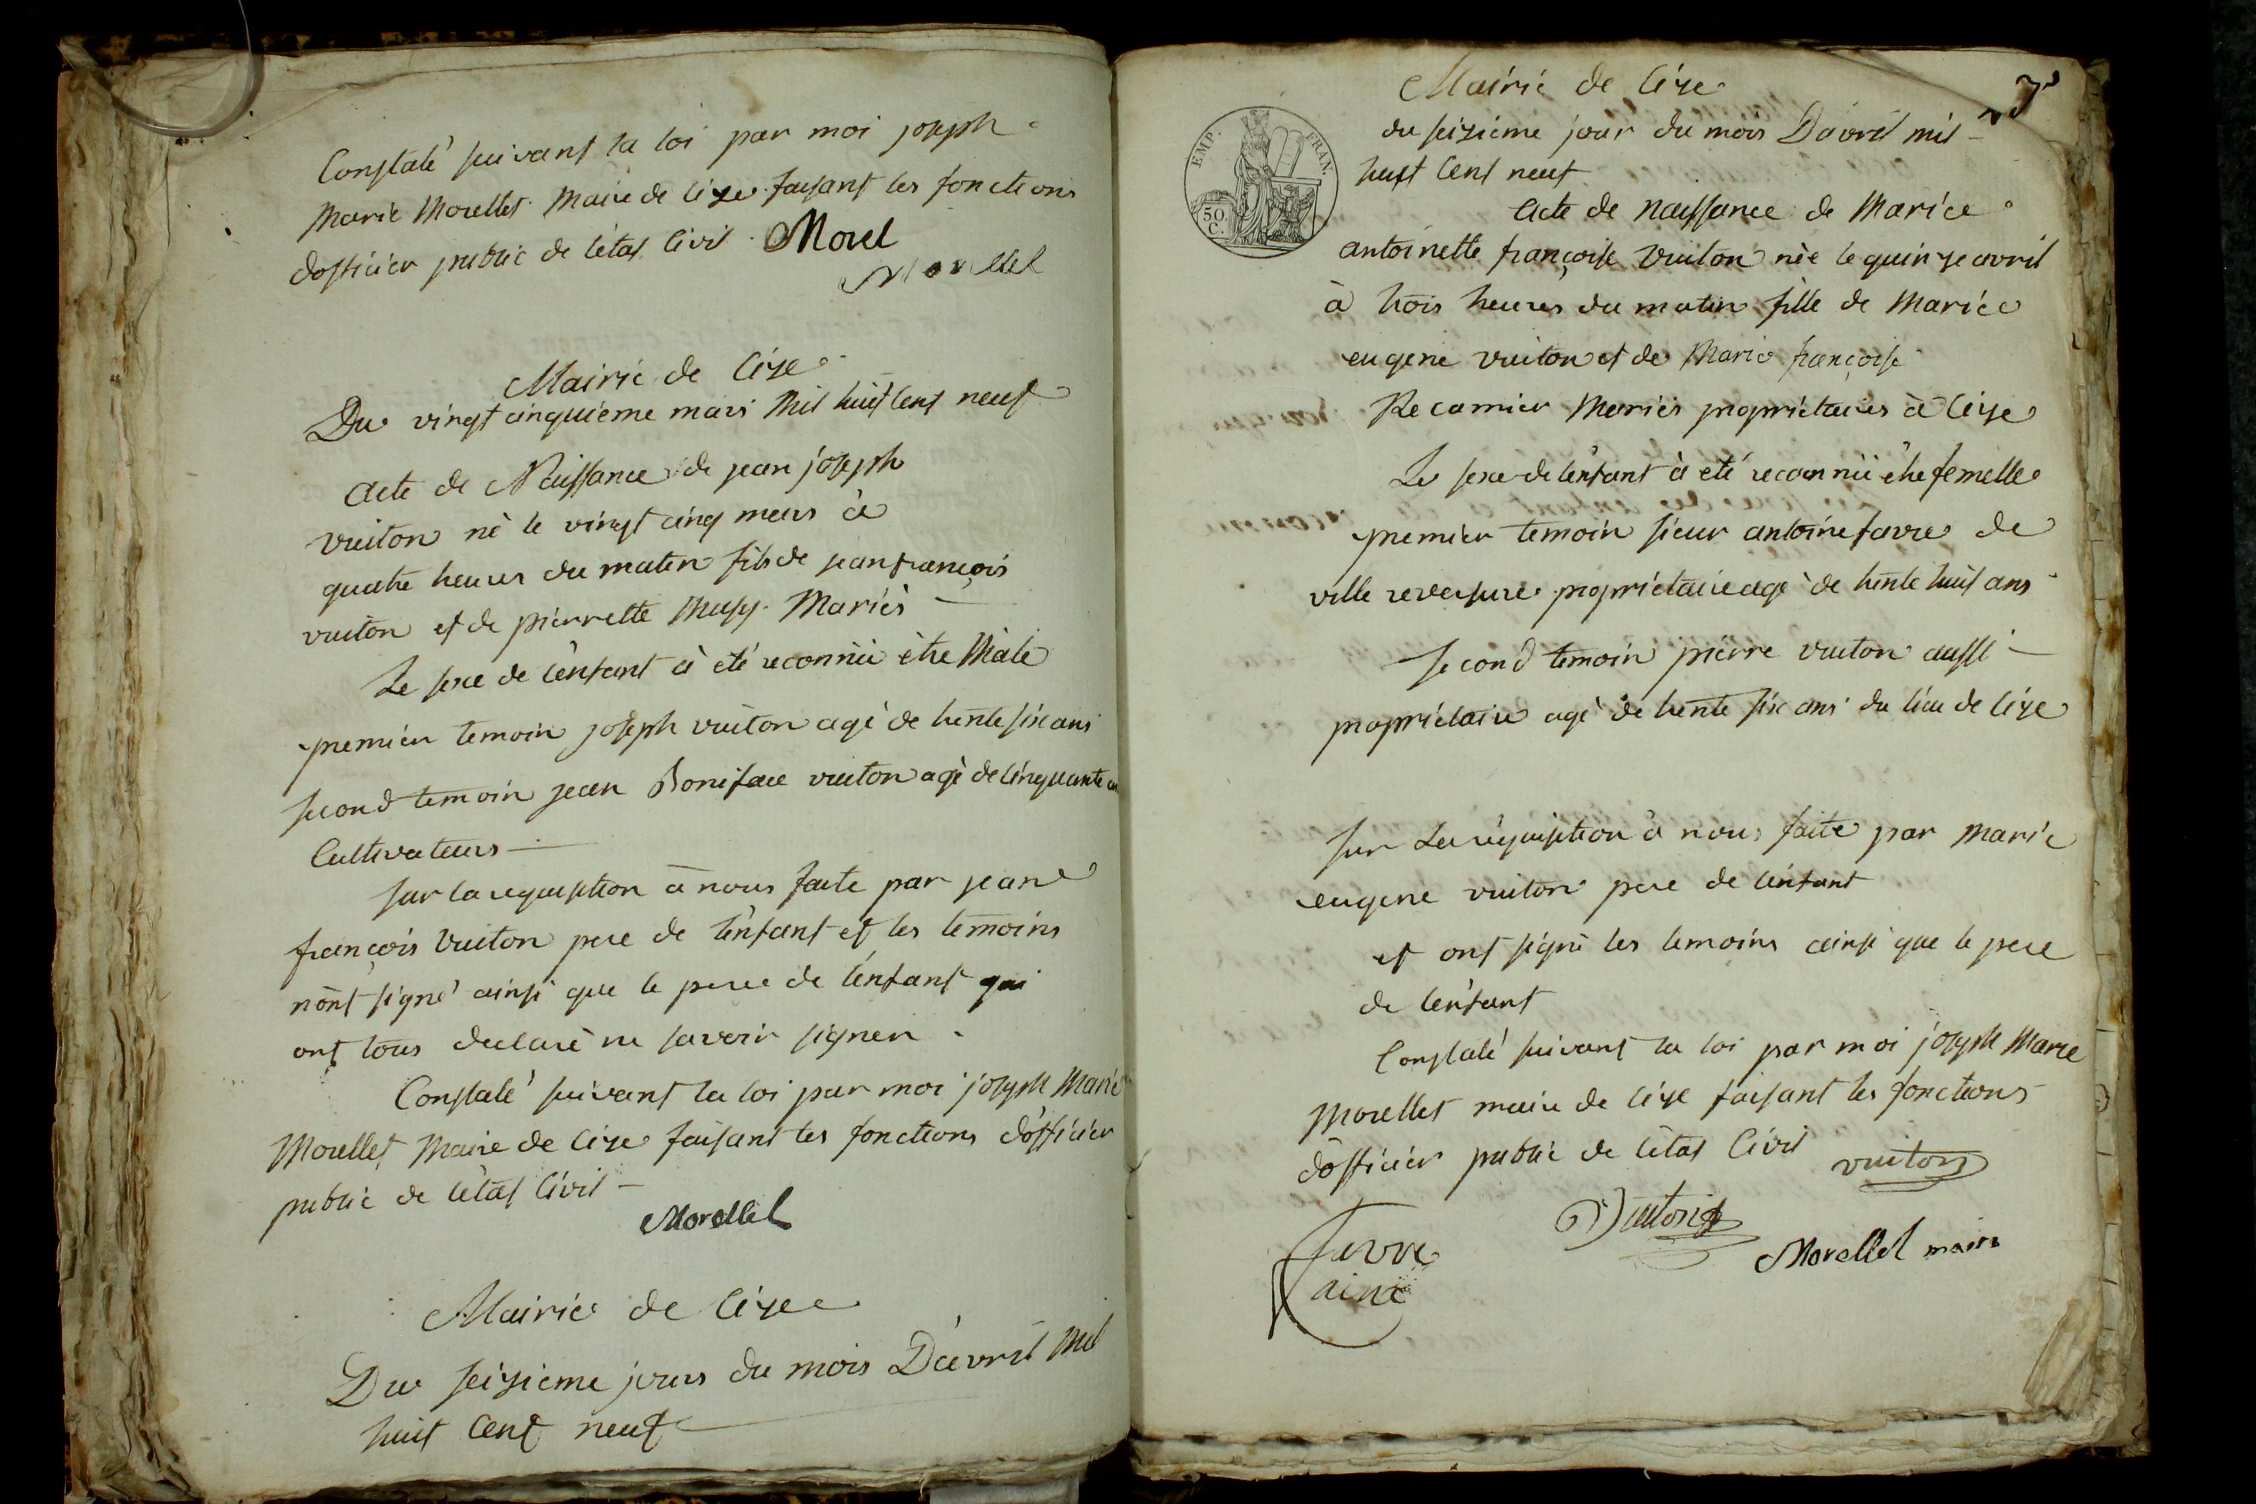 Constaté suivant la loi par moi joseph
Marie Morellet Maire de Cize faisant les fonctions
dofficier public de létat Civil Morel
Morellet
Mairie de Cize
Du vingt cinquieme mars Mil huit Cent neuf
acte de Naissance de jean joseph
vuiton né le vingt cinq mars à
quatre heures du matin fils de jean françois
vuiton et de pierrette Mariés
Le sexe de lenfant à eté reconnù être Male
premier temoin joseph vuiton agé de trente six ans
second temoin jean Boniface vuiton agé de Cinquante
Cultivateurs
sur la requisition à nous faite par jean
françois vuiton pere de lenfant et les temoins
nont signé ainsi que le pere de lenfant qui
ont tous declaré ne savoir signer
Constaté suivant la loi par moi joseph Marie
Morellet Maire de Cize faisant les fonctions dofficier
public de létat Civil
Morellet
Mairie de Cize
Du seizieme jours du mois Davril Mil
huit Cent neuf
3
Mairie de Cize
du seizieme jour du mois Davril mil
huit Cent neuf
EMP. FRAN.
50 C.
acte de naissance de Marie
antoinette françoise vuiton née le quinze avril
à trois heures du matin fille de Marie
eugene vuiton et de Marie françoise
Recamier Mariés propriétaires à Cize
Le sexe de lenfant à eté reconnù être femelle
premier temoin sieur antoine favre de
ville reversure propriétaire agé de trente huit ans
second temoin pierre vuiton aussi
propriétaire agé de trente six ans du lieu de Cize
sur La requisition à nous faite par Marie
eugene vuiton pere de lenfant
et ont signé les temoins ainsi que le pere
de lenfant
Constaté suivant la loi par moi joseph Marie
Morellet maire de Cize faisant les fonctions
dofficier public de létat Civil vuiton
Vuiton
favre
ainé
Morellet maire